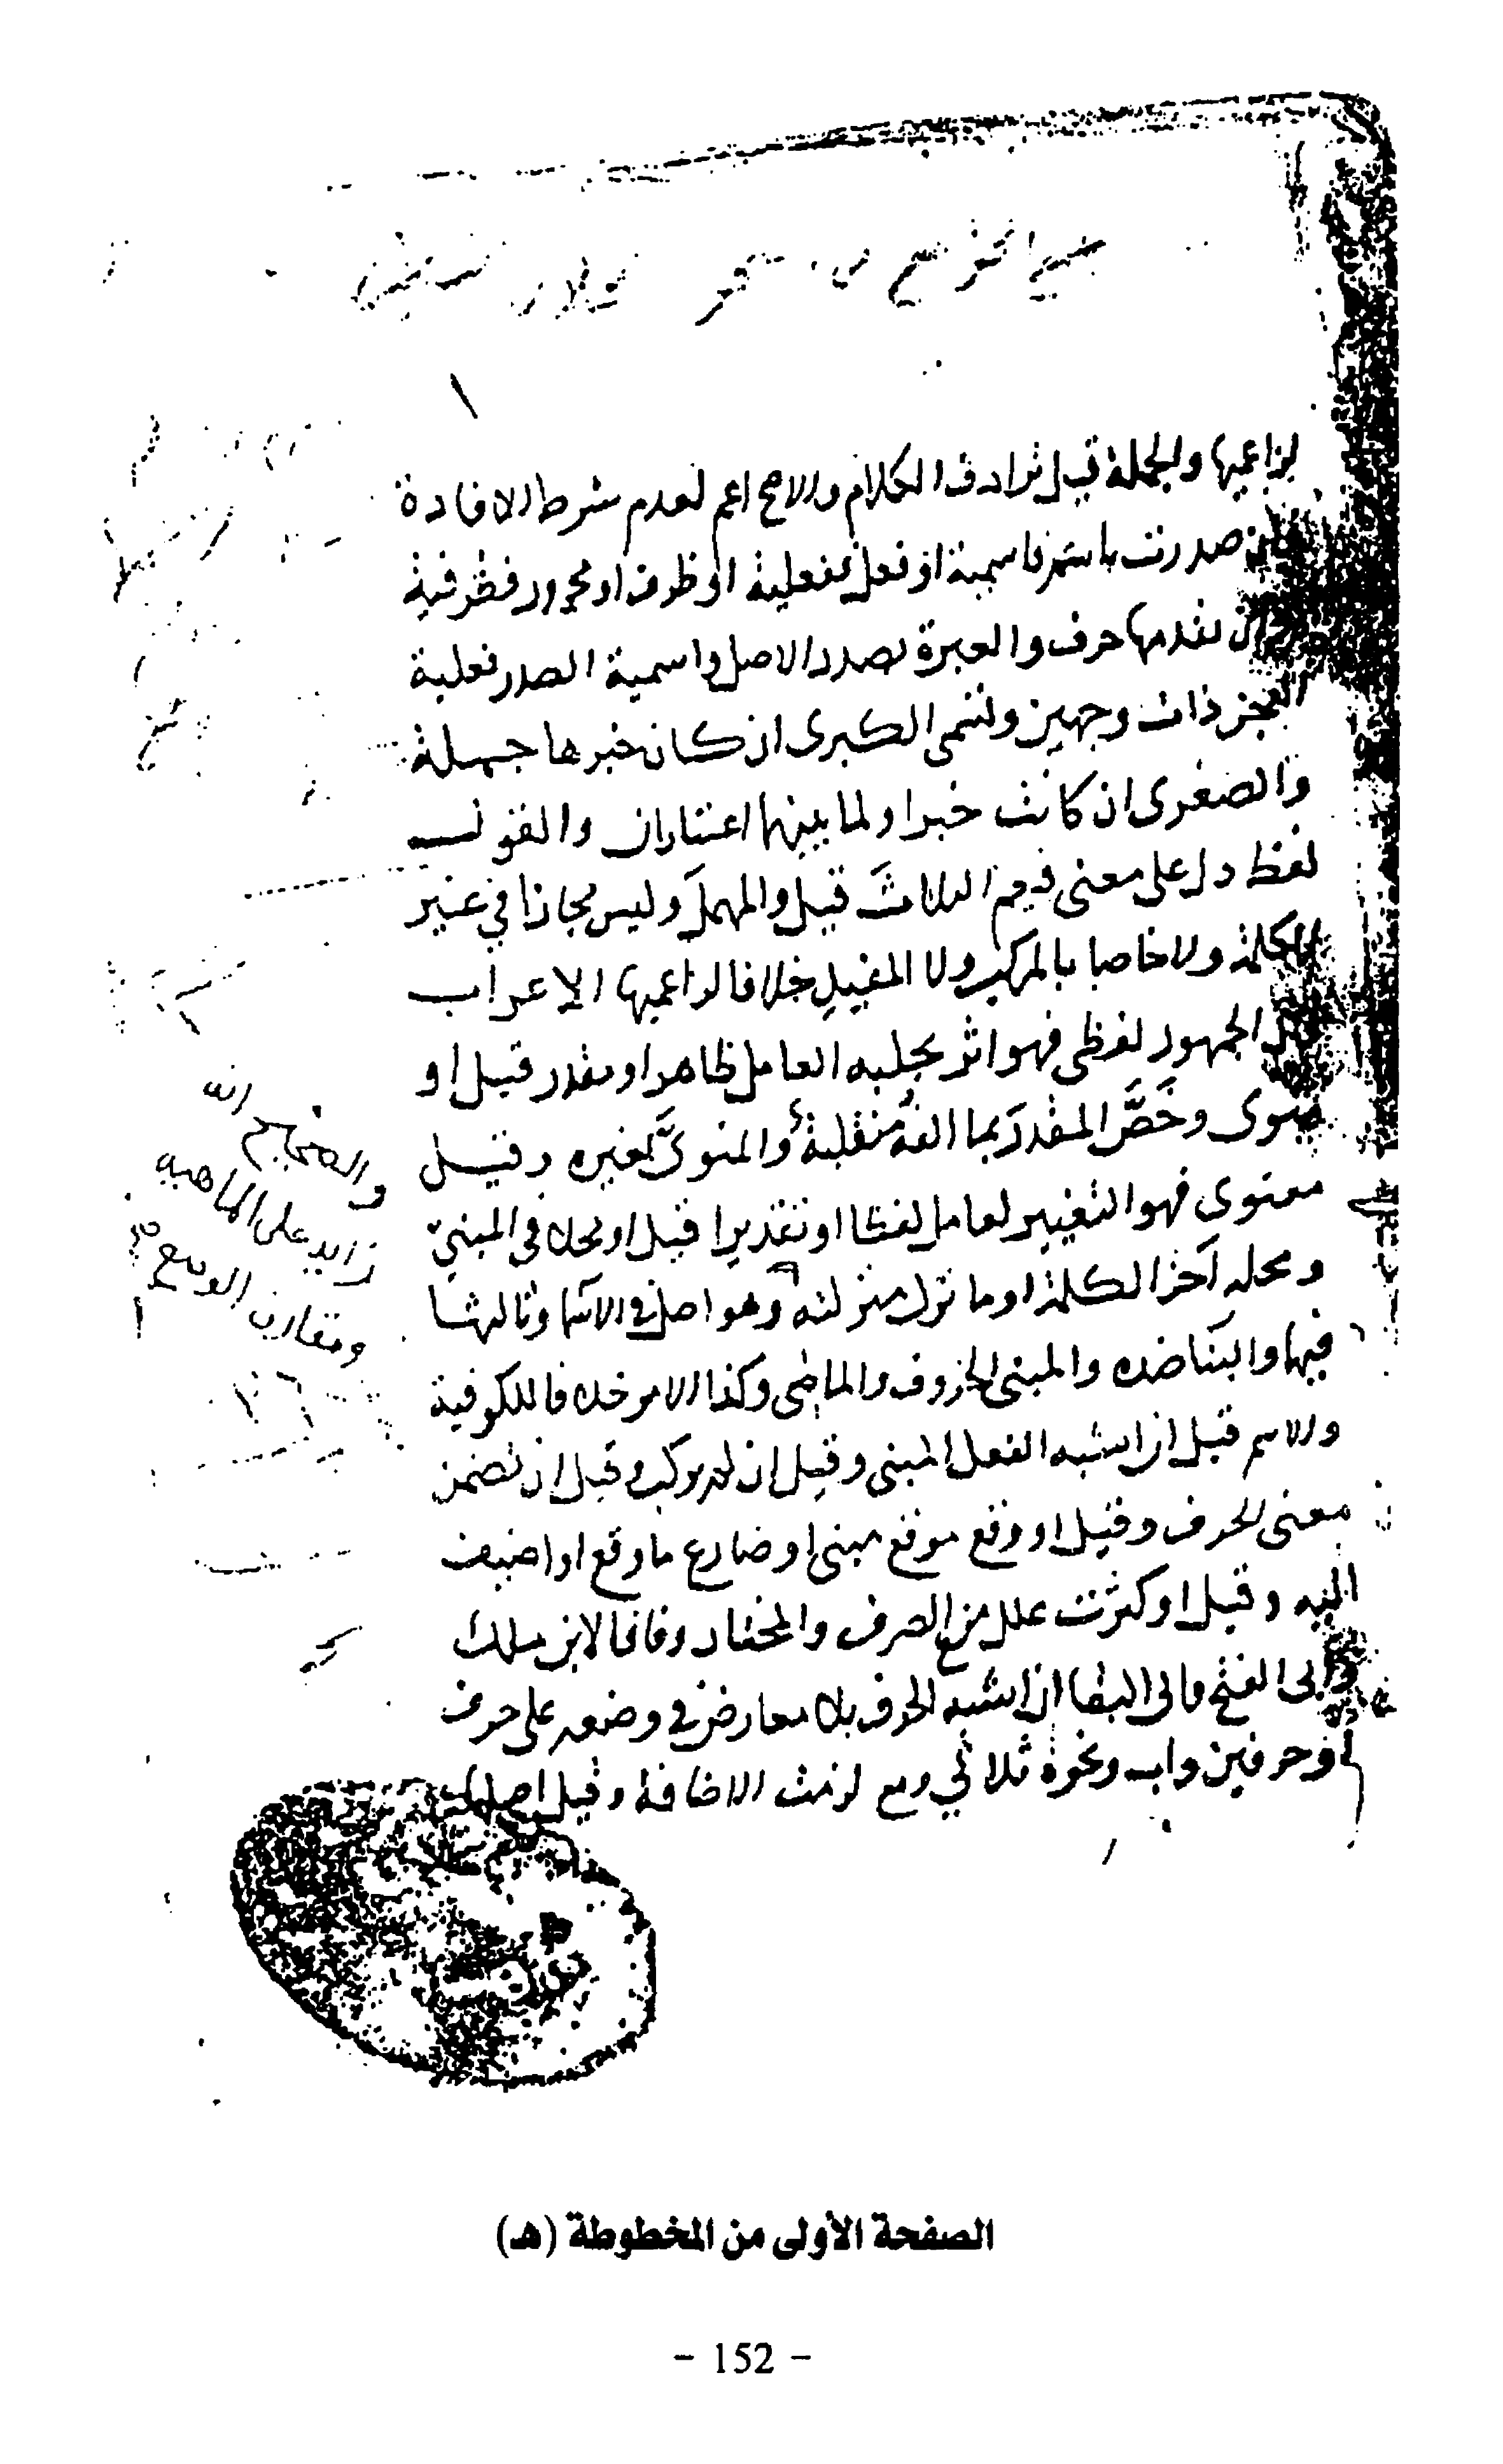 لزاعميها والجملة قيل ترادف الكلام والاصح اعم لعدم شرط الافادة
صدرت باسم فاسمية او فعل ففعلية او ظرف او مجرور فظرفية
تقدمها حرف والعبرة بصدر الاصل واسمية الصدر فعلية
العجز ذات وجهين وتسمى الكبرى ان كان خبرها جملة
والصغرى ان كانت خبرا ولما بينهما اعتباران والقول
لفظ دل على معنى فيعم الثلاث قيل والمهمل وليس مجازا في غير
الكلمة ولا خاصا بالمركب ولا المفيد خلافا لزاعميها الاعراب
الجمهور لفظي فهو اثر يجلبه العامل ظاهر او مقدر قيل او
منوى وخص المقدر بما الفه منقلبة والمنوى بغيره وقيل
معنوى فهو التغيير لعامل لفظا او تقديرا قيل او محلا في المبني
ومحله آخر الكلمة او ما نزل منزلته وهو اصل في الاسما وثالثها
فيها والبنا ضده والمبنى الحروف والماضى وكذا الامر خلافا للكوفية
والاسم قيل ان اشبه الفعل المبنى وقيل ان لم يركب وقيل ان تضمن
معنى الحرف وقيل او وقع موقع مبنى او ضارع ما وقع او اضيف
اليه وقيل او كثرت علل منع الصرف والمختار وفاقا لابن ملك
وابى الفتح وابى البقا ان اشبه الحرف بلا معارض في وضعه على حرف
او حرفين واب ونحوه ثلاثي ومع لزمت الاضافة وقيل اصلها
والصحيح انه
زايد على الماهية
ومقارن الوضع
الصفحة الأولى من المخطوطة (هـ)
- 152 -